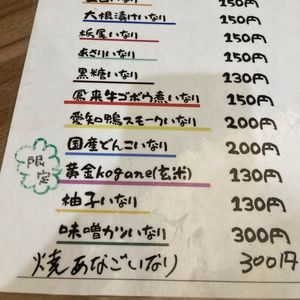 五目いなり 150円
大根漬けいなり 150円
栃尾いなり 150円
あさりいなり 150円
黒糖いなり 130円
鳳来牛ゴボウ煮いなり 150円
愛知鴨スモークいなり 200円
国産でんこいなり 200円
限定
黄金kogane(玄米) 130円
柚子いなり 130円
味噌カツいなり 300円
焼あなごいなり 300円